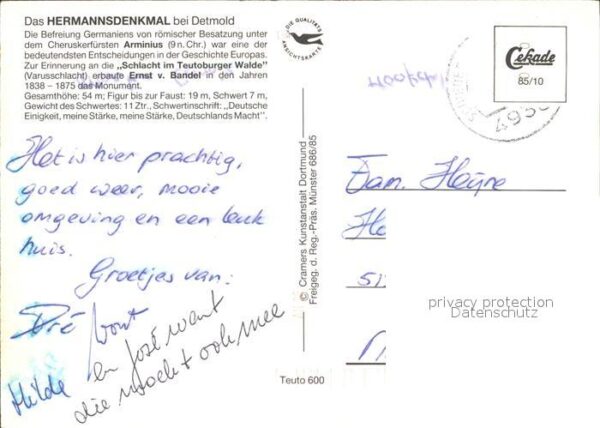 Das HERMANNSDENKMAL bei Detmold
Die Befreiung Germaniens von römischer Besatzung unter
dem Cheruskerfürsten Arminius (9 n. Chr.) war eine der
bedeutendsten Entscheidungen in der Geschichte Europas.
Zur Erinnerung an die „Schlacht im Teutoburger Walde"
(Varusschlacht) erbaute Ernst v. Bandel in den Jahren
1838 - 1875 das Monument.
Gesamthöhe: 54 m; Figur bis zur Faust: 19 m, Schwert 7 m,
Gewicht des Schwertes: 11 Ztr., Schwertinschrift: „Deutsche
Einigkeit, meine Stärke, meine Stärke, Deutschlands Macht".
Het is hier prachtig,
goed weer, mooie
omgeving en een leuk
huis.
Groetjes van:
Dré
Hilde en José want
die mocht ook mee
DIE QUALITÄTS
ANSICHTSKARTE
© Cramers Kunstanstalt Dortmund
Freigeg. d. Reg.-Präs. Münster 686/85
Teuto 600
Cekade
85/10
Fam. Heijne
privacy protection
Datenschutz